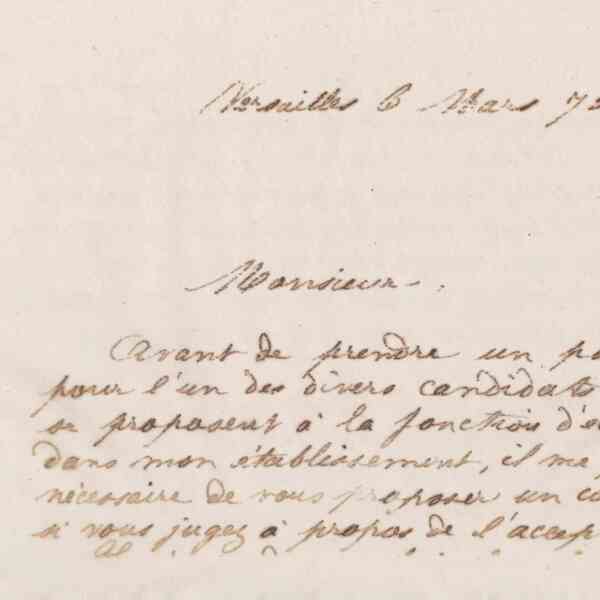 Versailles 6 Mars 72
Monsieur.
Avant de prendre un
pour l'un des divers candidats
se proposent à la fonction
dans mon établissement, il me
nécessaire de vous proposer un
si vous jugez à propos de